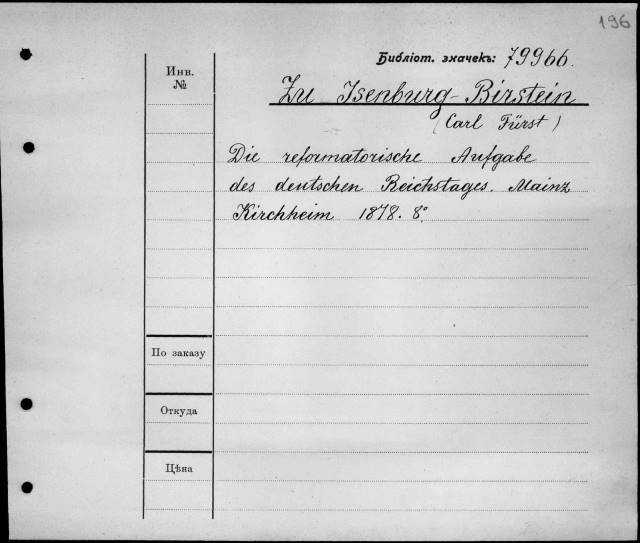 196
Библіот. значекъ: 79966.
Инв.
№
Zu Isenburg-Birstein
(Carl Fürst)
Die reformatorische Aufgabe
des deutschen Reichstages. Mainz
Kirchheim 1878. 8°.
По заказу
Откуда
Цѣна